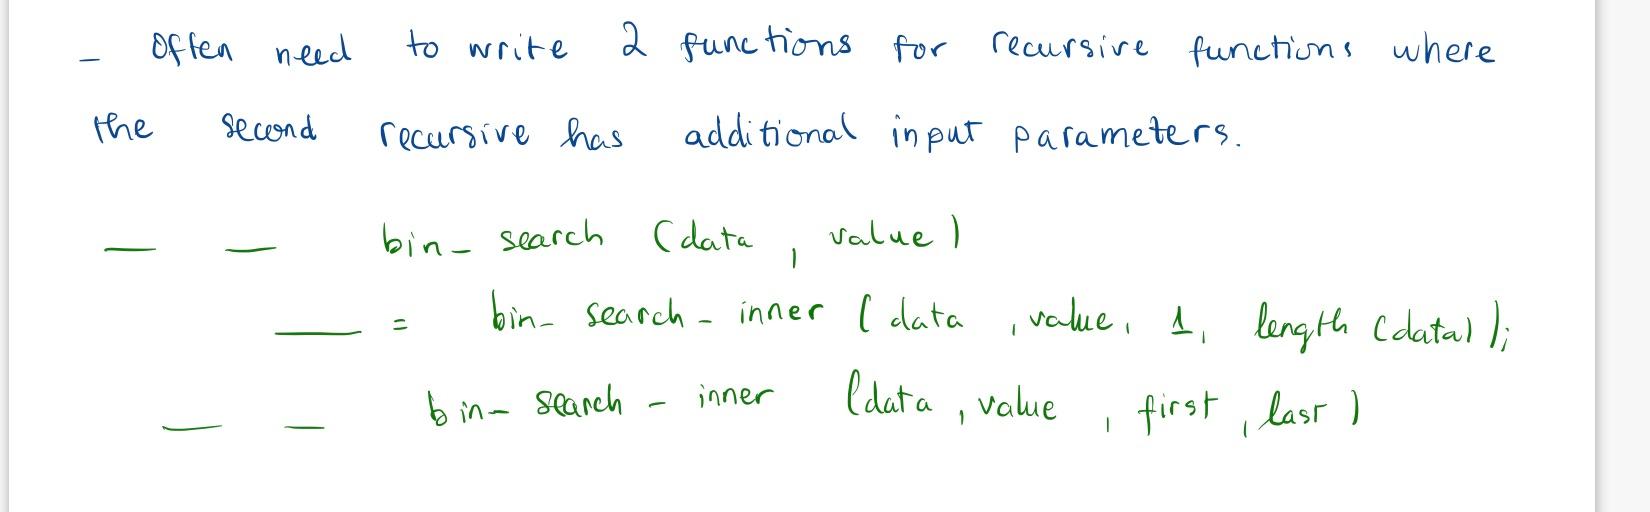 - Often need to write 2 functions for recursive functions where
the second recursive has additional input parameters.
__ __ bin_search (data, value)
__ = bin_search_inner (data, value, 1, length (data));
__ __ bin_search_inner (data, value, first, last)